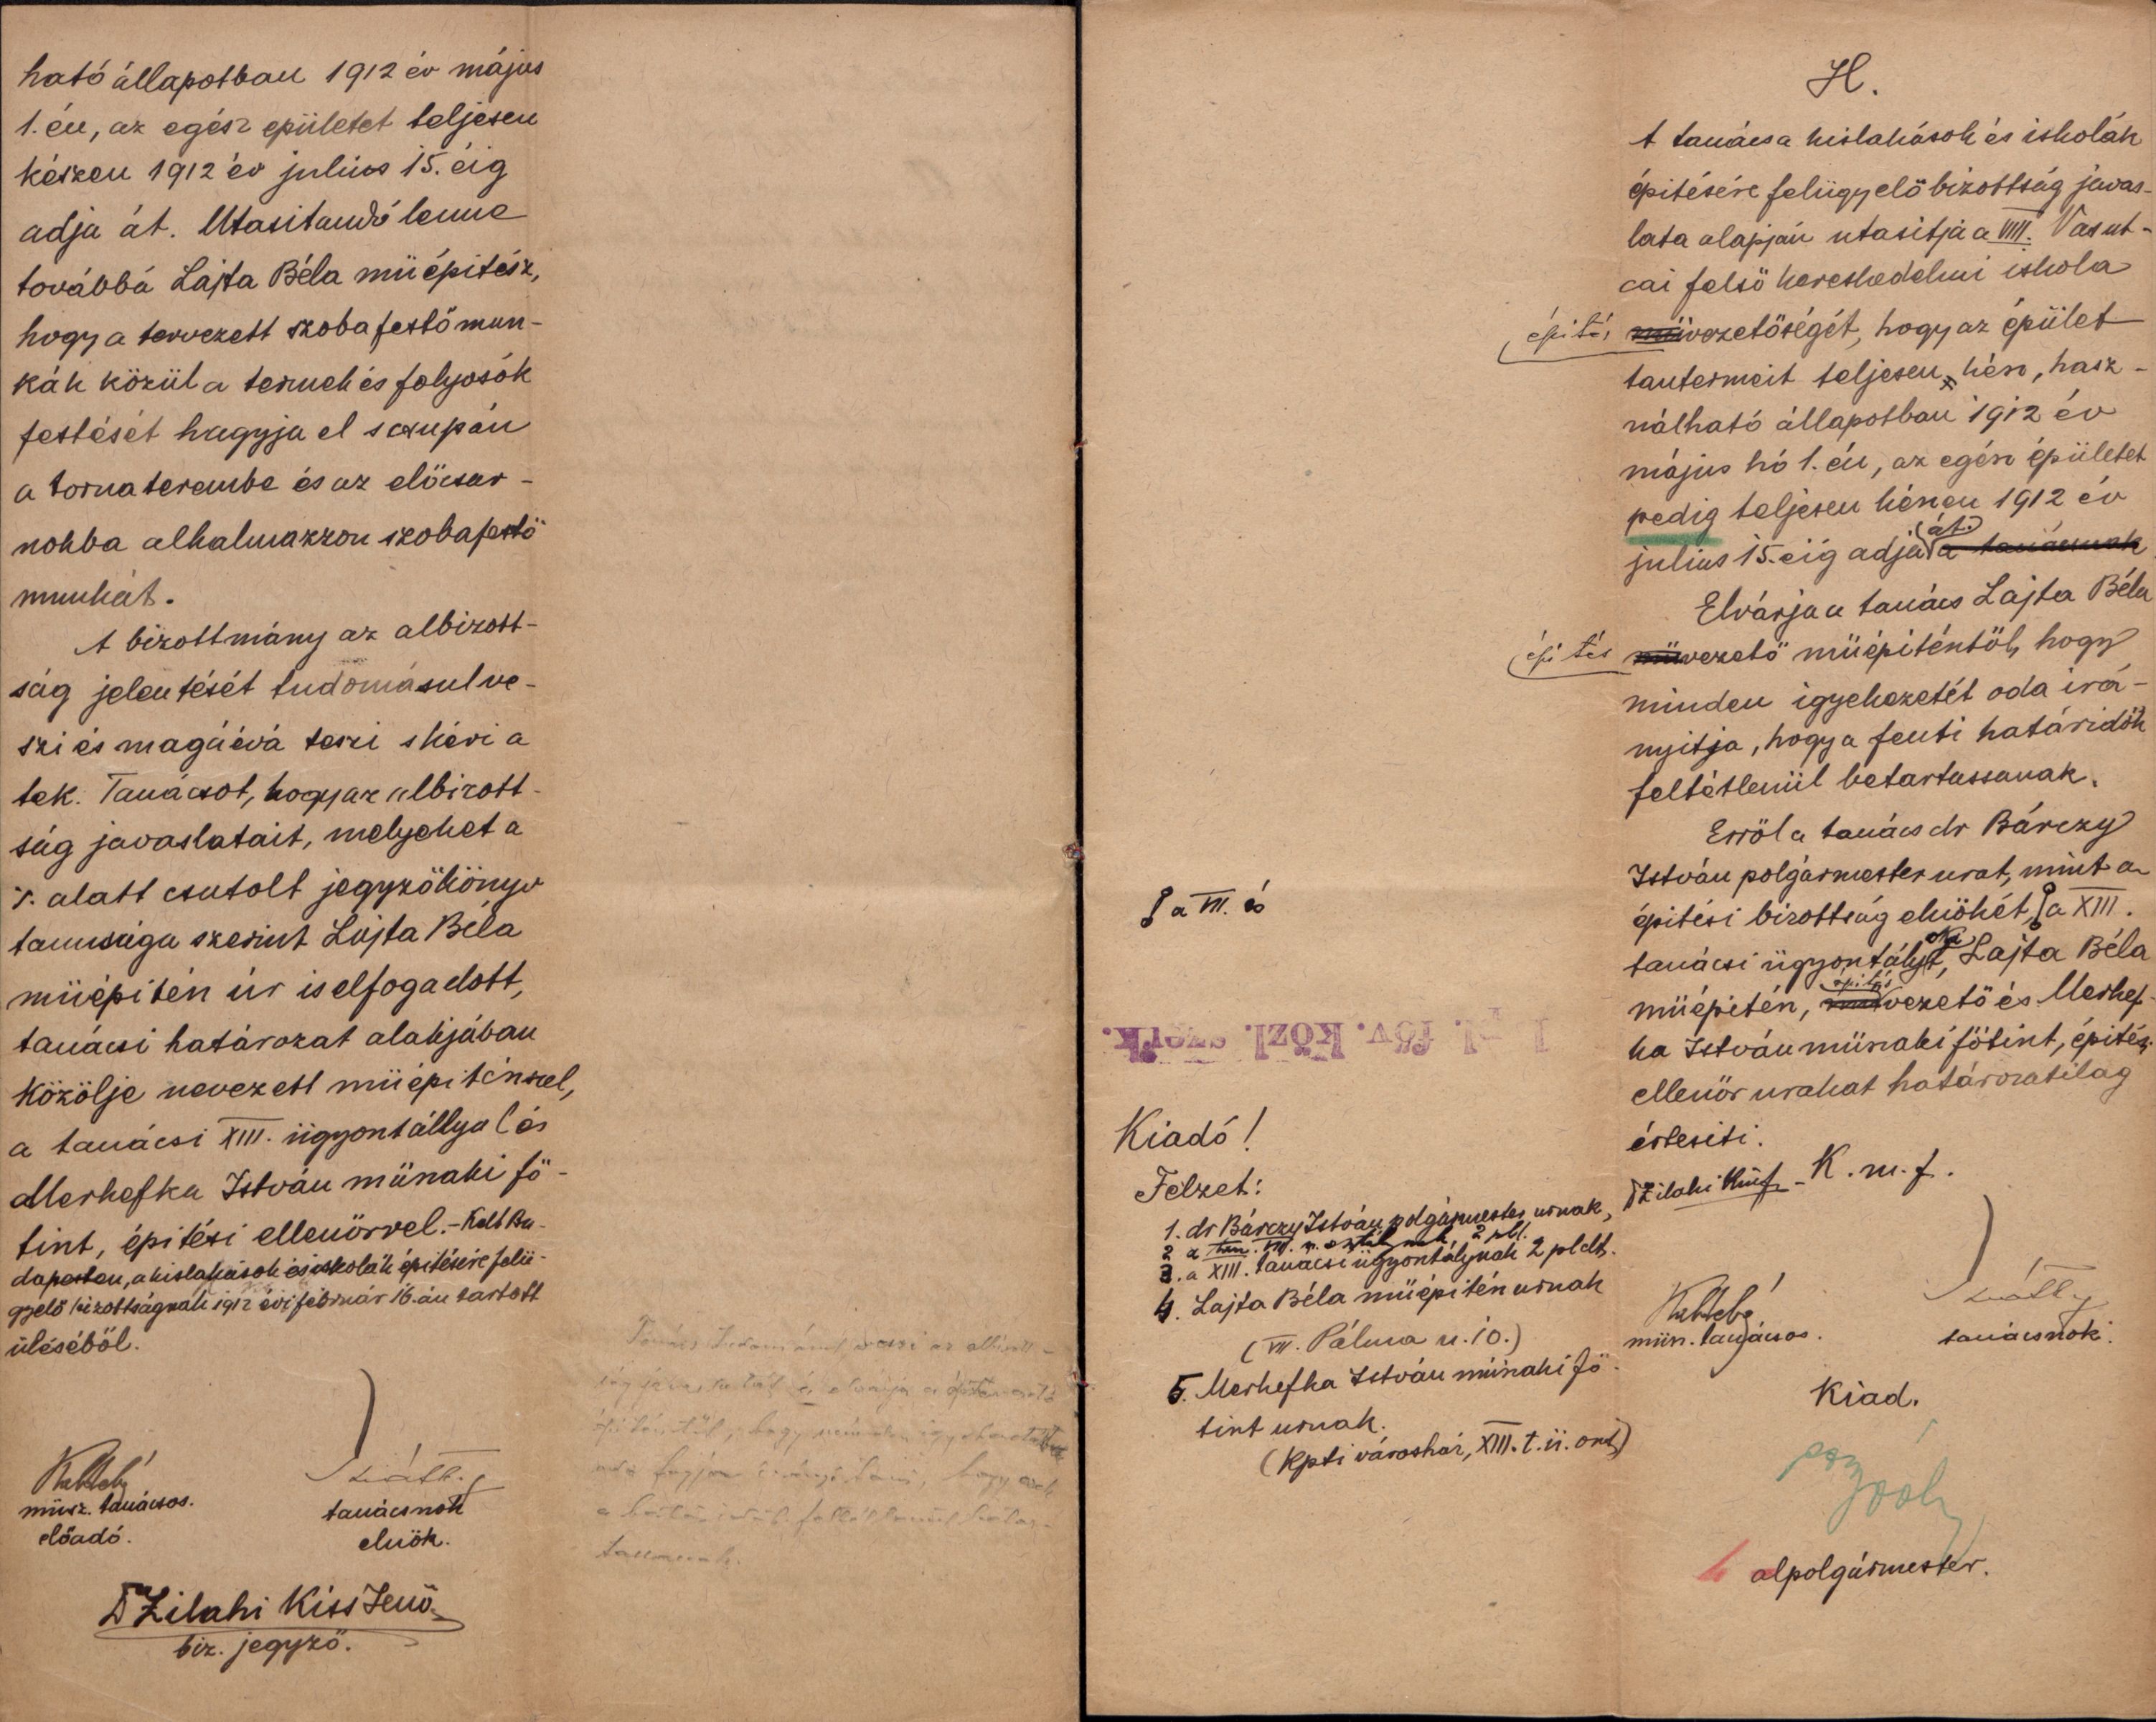 ható állapotban 1912 év május
1.én, az egész épületet teljesen
készen 1912 év julius 15. éig
adja át. Utasitandó lenne
továbbá Lajta Béla müépitész,
hogy a tervezett szobafestő mun-
kák közül a termek és folyosók
festését hagyja el s csupán
a tornaterembe és az előcsar-
nokba alkalmazzon szobafestő
munkát.
A bizottmány az albizott-
ság jelentését tudomásul ve-
szi és magáévá teszi s kéri a
tek. Tanácsot, hogy az albizott-
ság javaslatait, melyeket a
·/. alatt csatolt jegyzőkönyv
tanusága szerint Lajta Béla
müépitész úr is elfogadott,
tanácsi határozat alakjában
közölje nevezett müépitésszel,
a tanácsi XIII. ügyosztállyal és
Merkefka István müszaki fő-
tiszt, épitési ellenőrrel. - Kelt Bu-
dapesten, a kislakások és iskolák épitésére felü-
gyelő bizottságnak 1912 évi február 16.án tartott
üléséből.
müsz. tanácsos.
előadó.
tanácsnok
elnök.
Dr Zilahi Kiss Jenő
biz. jegyző.
Tanács tudomásul veszi az albizott-
hogy
H.
A tanács a kislakások és iskolák
épitésére felügyelő bizottság javas-
lata alapján utasitja a VIII. Vas ut-
cai felső kereskedelmi iskola
épités vezetőségét, hogy az épület
tantermeit teljesen kész, hasz-
nálható állapotban 1912 év
május hó 1.én, az egész épületet
pedig teljesen készen 1912 év
julius 15.éig adja át. a tanácsnak
Elvárja a tanács Lajta Béla
épités vezető müépitésztől, hogy
minden igyekezetét oda irá-
nyitja, hogy a fenti határidők
feltétlenül betartassanak.
Erről a tanács dr Bárczy
István polgármester urat, mint az
épitési bizottság elnökét, a XIII.
a VII. és
tanácsi ügyosztályt, Lajta Béla
müépitész, épités vezető és Merkef-
ka István müszaki főtiszt, épitész.
ellenőr urakat határozatilag
értesiti.
Dr Zilahi Kiss J. - K. m. f.
müsz. tanácsos.
tanácsnok.
Kiad.
alpolgármester.
föv. közl. szerk.
Kiadó!
Felzet:
1. dr Bárczy István polgármester urnak,
2 a tan. VII. ü. osztálynak, 2 pld.
3. a XIII. tanácsi ügyosztálynak 2 pldb.
4. Lajta Béla müépitész urnak
(VII. Pálma u. 10.)
5. Merkefka István müszaki fő-
tiszt urnak.
(Kpti városház, XIII. t. ü. oszt)